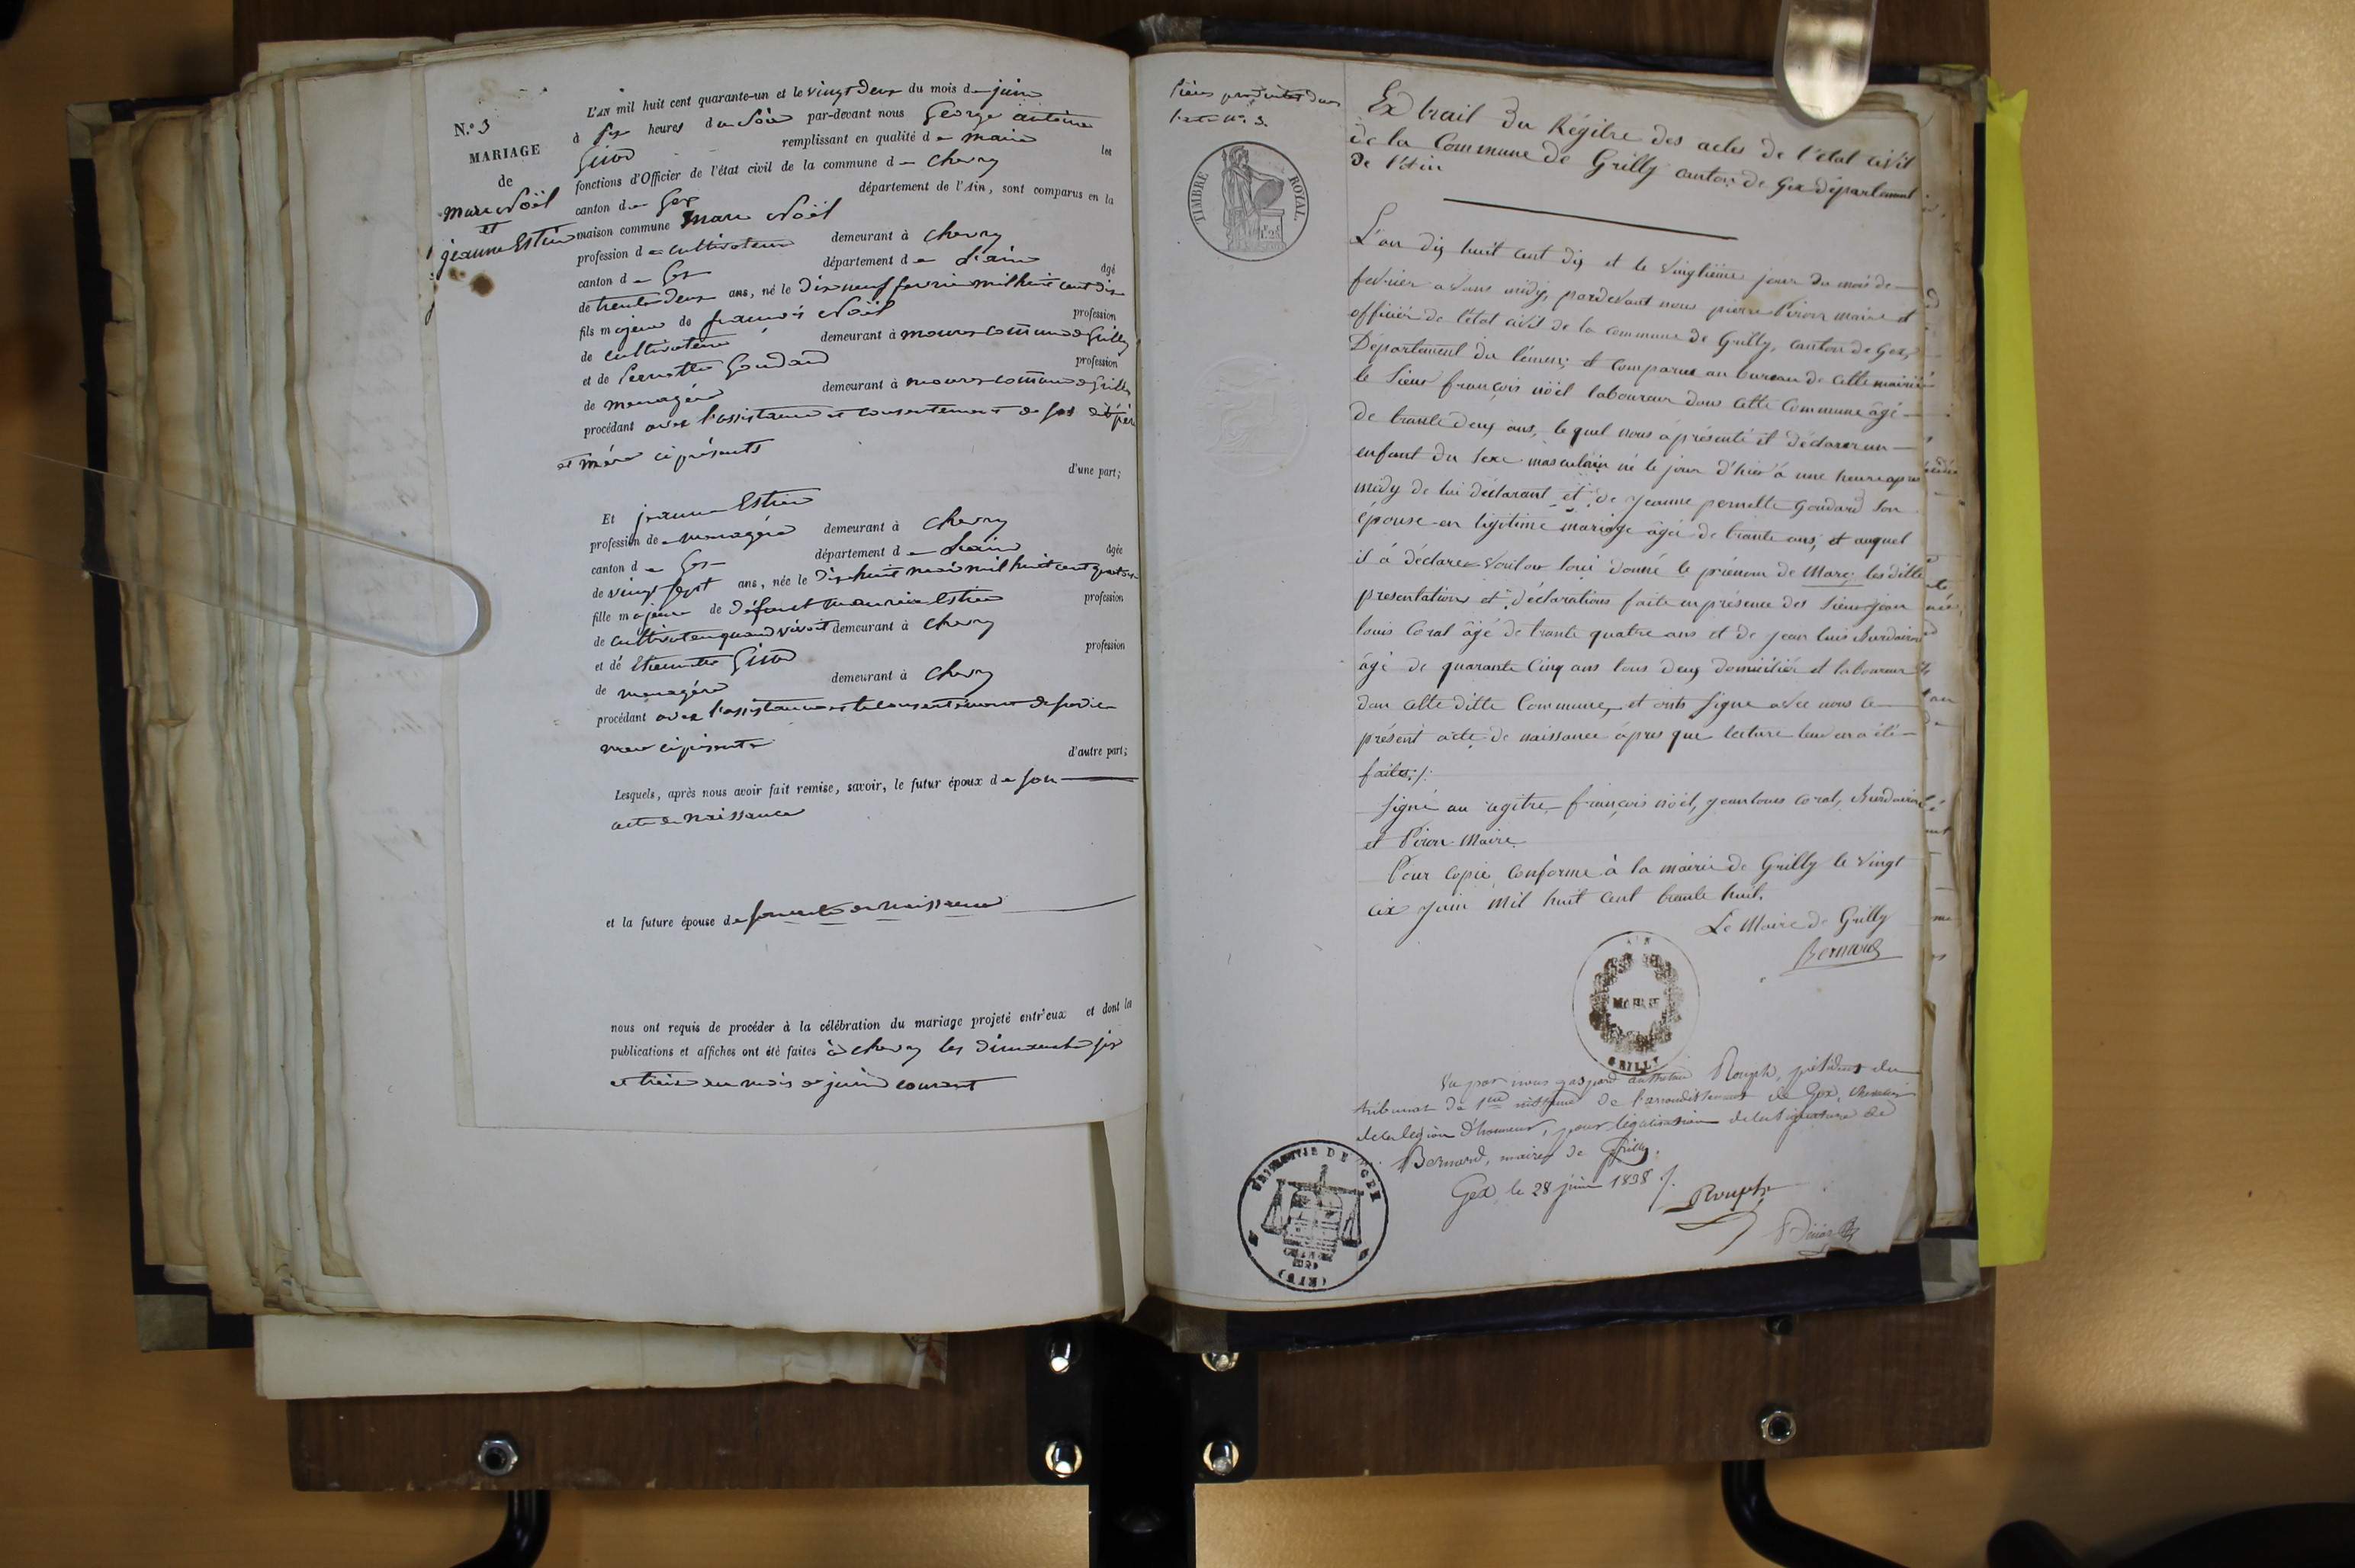 N.º 3
MARIAGE
de
marc Noël
et
jeanne Estier
L'AN mil huit cent quarante-un et le vingt deux du mois de juin
à six heures du soir par-devant nous George antoine
Girod remplissant en qualité de maire les
fonctions d'Officier de l'état civil de la commune de chevry
canton de Gex département de l'Ain, sont comparus en la
maison commune marc Noël
profession de cultivateur demeurant à chevry
canton de Gex département de l'ain âgé
de trente deux ans, né le dix neuf fevrier mil huit cent dix
fils majeur de françois Noël profession
de cultivateur demeurant à mourex commune de Grilly
et de Pernette Goudard profession
de menagère demeurant à mourex commune de Grilly
procédant avec l'assistance et consentement de ses dit père
et mère ci présents
d'une part;
Et jeanne Estier
profession de menagère demeurant à chevry
canton de Gex département de l'ain âgée
de vingt sept ans, née le dix huit mai mil huit cent quatorze
fille majeure de défunt maurice Estier profession
de cultivateur quand vivoit demeurant à chevry
et de Etiennette Girod profession
de menagère demeurant à chevry
procédant avec l'assistance et le consentement de sa dite
mère ci présente
d'autre part;
Lesquels, après nous avoir fait remise, savoir, le futur époux de son
acte de naissance
et la future épouse de son acte de naissance
nous ont requis de procéder à la célébration du mariage projeté entr'eux et dont les
publications et affiches ont été faites à chevry les dimanche six
et treize du mois de juin courant
Pièces produites dans
l'acte nº. 3.
TIMBRE ROYAL
Extrait du Régitre des actes de l'état civil
de la Commune de Grilly canton de Gex département
de l'Ain
L'an dix huit cent dix et le vingtième jour du mois de
fevrier avant midy, pardevant nous pierre Piron maire et
officier de l'état civil de la commune de Grilly, canton de Gex,
Département du Léman; est comparue au bureau de cette mairie
le Sieur françois noël laboureur dans cette Commune âgé
de trante deux ans, lequel nous à présenté et déclarer un
enfant du sexe masculain né le jour d'hier à une heure apres
midy de lui déclarant et de jeanne pernette Goudard son
épouse en légitime mariage âgée de trante ans; et auquel
il à déclare vouloir loui donné le prénom de Marc; les ditte
presentations et déclarations faite en présence des Sieur jean
louis Corat âgé de trante quatre ans et de jean luis Burdairon
âgé de quarante Cinq ans tous deux domicilié et laboureur
dan cette ditte Commune, et onts signe avec nous le
présent acte de naissance àpres que lecture leur en a été
faites ;/:
Signé au regitre, françois noël, jean louis corat, Burdairon
et Piron Maire.
Pour copie conforme à la mairie de Grilly le vingt
six juin mil huit cent trante huit.
Le Maire de Grilly
Bernard
MAIRIE
GRILLY
Vu par nous gaspard anthelme Rouph, président du
tribunal de 1ere instance de l'arrondissement de Gex, chevalier
de la légion d'honneur, pour légalisation de la signature de
Bernard, maire de Grilly.
Gex, le 28 juin 1838 /.
Rouph
DE GEX
(AIN)